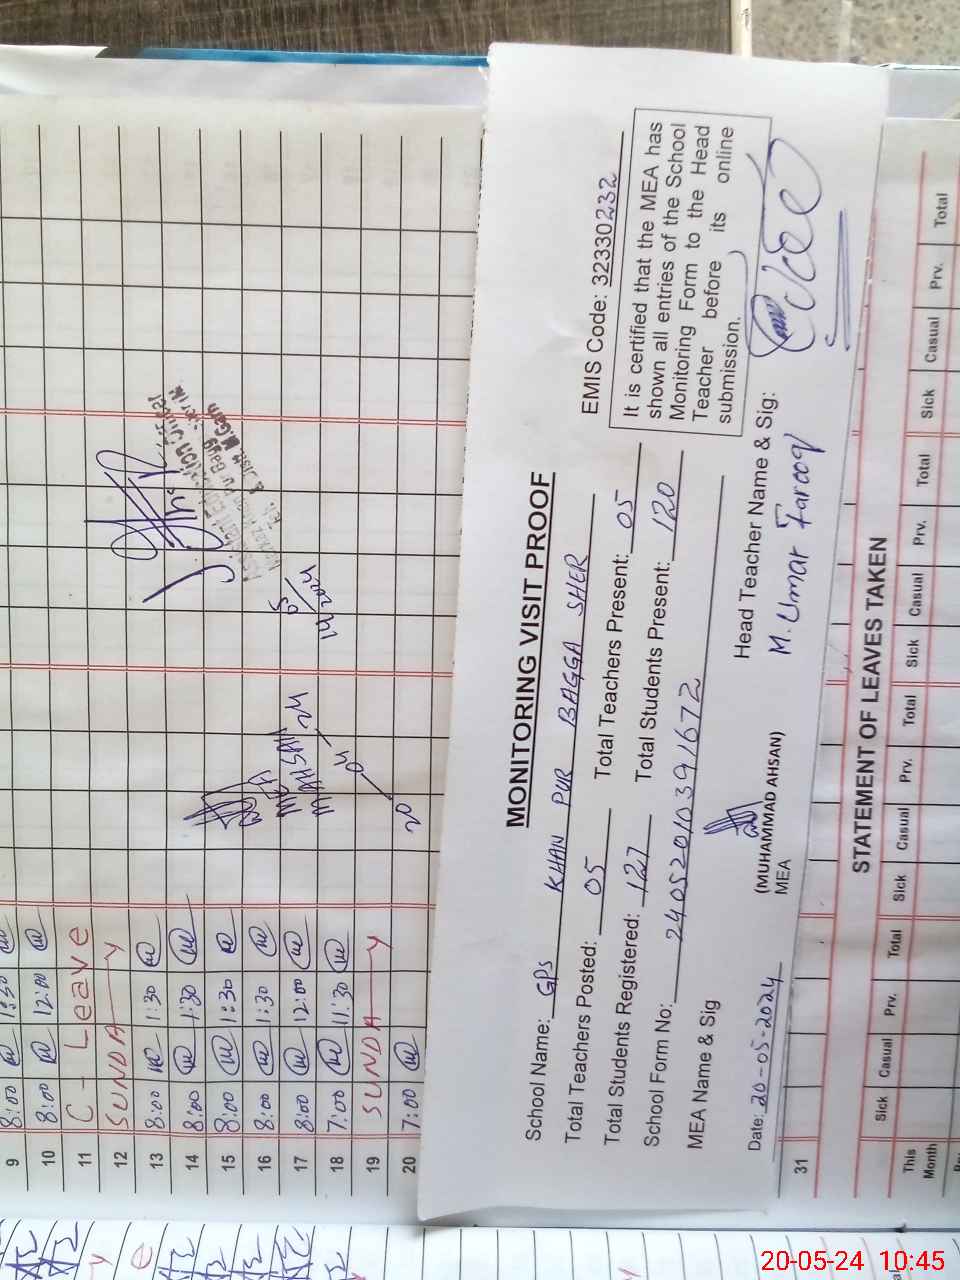 9 8:00 1:30
10 8:00 12:00
11 C - Leave
12 SUNDAY
13 8:00 1:30
14 8:00 1:30
15 8:00 1:30
16 8:00 1:30
17 8:00 12:00
18 7:00 11:30
19 SUNDAY
20 7:00
MEA
M AHSAN
20-04-24
MONITORING VISIT PROOF
School Name: GPS KHAN PUR BAGGA SHER EMIS Code: 32330232
Total Teachers Posted: 05 Total Teachers Present: 05
Total Students Registered: 127 Total Students Present: 120
School Form No: 2405201039 1672
MEA Name & Sig
(MUHAMMAD AHSAN)
MEA
Date: 20-05-2024
It is certified that the MEA has
shown all entries of the School
Monitoring Form to the Head
Teacher before its online
submission.
Head Teacher Name & Sig:
M. Umar Farooq
31
STATEMENT OF LEAVES TAKEN
Sick Casual Prv. Total Sick Casual Prv. Total Sick Casual Prv. Total Sick Casual Prv. Total
This
Month
20-05-24 10:45